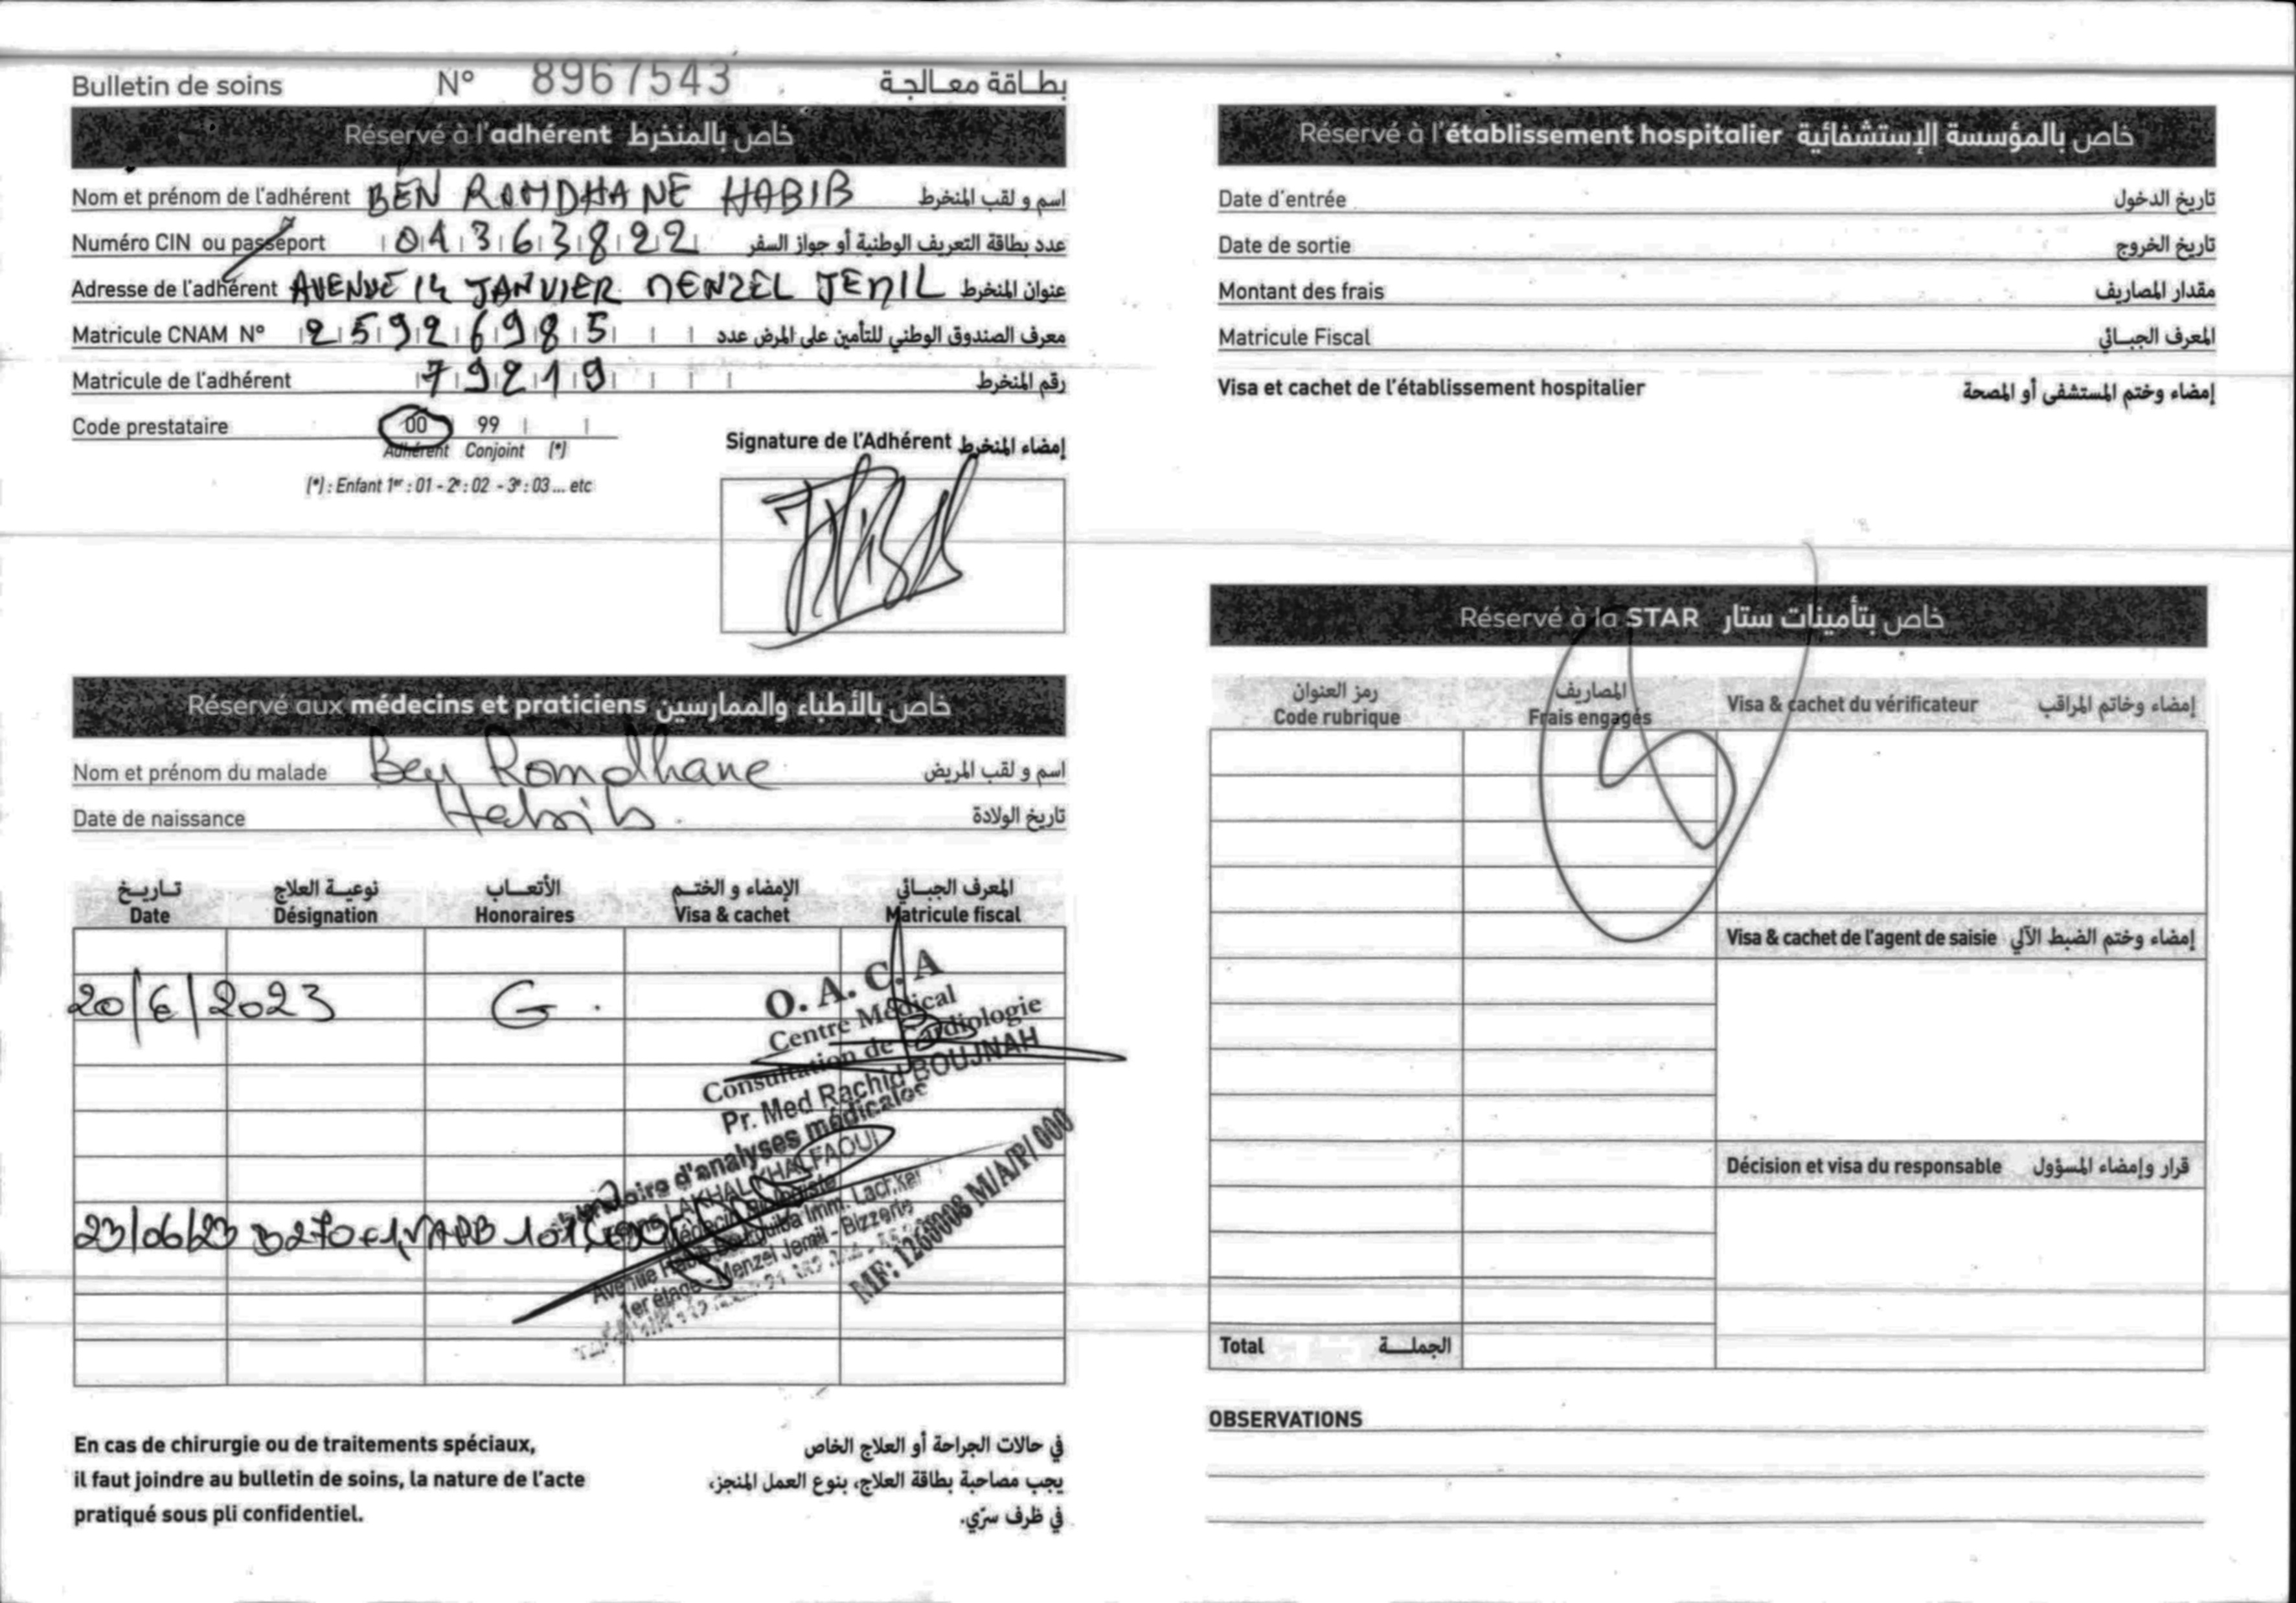 Bulletin de soins N° 8967543 بطاقة معالجة
Réservé à l'adhérent خاص بالمنخرط
Nom et prénom de l'adhérent BEN ROMDHANE HABIB اسم و لقب المنخرط
Numéro CIN ou passeport 04363822 عدد بطاقة التعريف الوطنية أو جواز السفر
Adresse de l'adhérent AVENUE 14 JANVIER MENZEL JEMIL عنوان المنخرط
Matricule CNAM N° 259269855 معرف الصندوق الوطني للتأمين على المرض عدد
Matricule de l'adhérent 79219 رقم المنخرط
Code prestataire 00 99
Adhérent Conjoint (*)
(*) : Enfant 1er : 01 - 2e : 02 - 3e : 03 ... etc
Signature de l'Adhérent إمضاء المنخرط
Réservé aux médecins et praticiens خاص بالأطباء والممارسين
Nom et prénom du malade Ben Romdhane اسم و لقب المريض
Date de naissance Habib تاريخ الولادة
تاريخ نوعية العلاج الأتعاب الإمضاء و الختم المعرف الجبائي
Date Désignation Honoraires Visa & cachet Matricule fiscal
20/6/2023 G.
O. A. C. A
Centre Médical
Consultation de Cardiologie
Pr. Med Rachid BOUJNAH
d'analyses médicales
LAKHAL KHALFAOUI
Médecin Biologiste
Avenue Habib Bourguiba Imm.
1er étage - Menzel Jemil - Bizerte
MF: 1263008 M/A/P/ 000
23/06/23 B270
En cas de chirurgie ou de traitements spéciaux,
il faut joindre au bulletin de soins, la nature de l'acte
pratiqué sous pli confidentiel.
في حالات الجراحة أو العلاج الخاص
يجب مصاحبة بطاقة العلاج، بنوع العمل المنجز،
في ظرف سرّي.
Réservé à l'établissement hospitalier خاص بالمؤسسة الإستشفائية
Date d'entrée تاريخ الدخول
Date de sortie تاريخ الخروج
Montant des frais مقدار المصاريف
Matricule Fiscal المعرف الجبائي
Visa et cachet de l'établissement hospitalier إمضاء وختم المستشفى أو المصحة
Réservé à la STAR خاص بتأمينات ستار
رمز العنوان المصاريف
Code rubrique Frais engagés Visa & cachet du vérificateur إمضاء وخاتم المراقب
Visa & cachet de l'agent de saisie إمضاء وختم الضبط الآلي
Décision et visa du responsable قرار وإمضاء المسؤول
Total الجملة
OBSERVATIONS